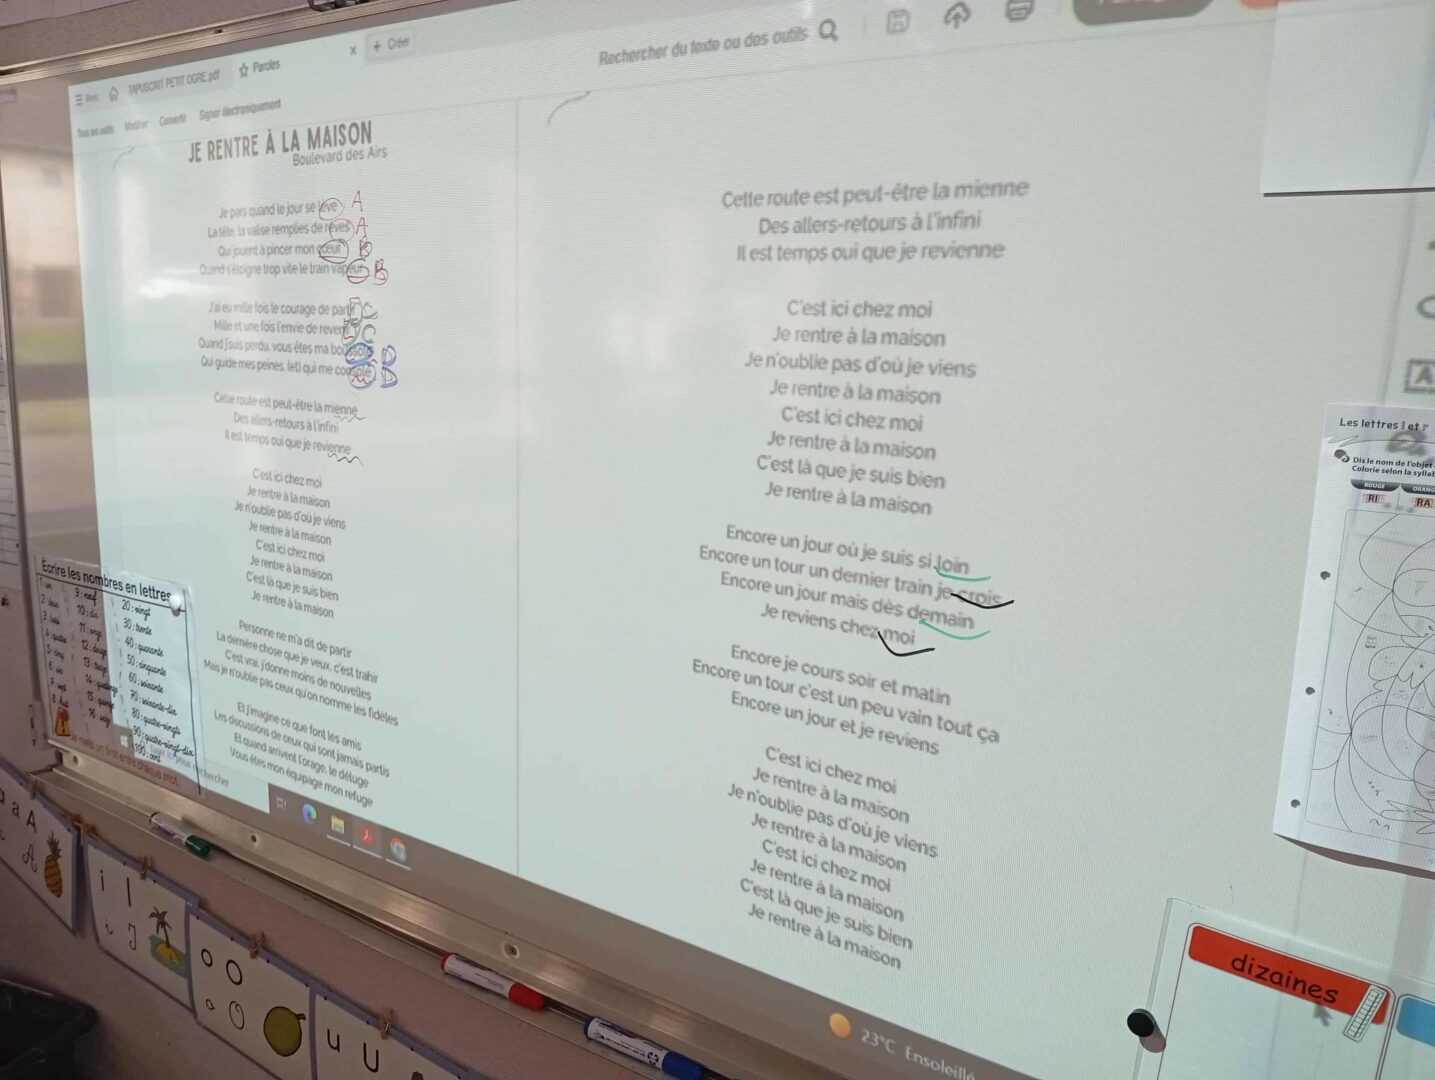 Menu
TAPUSCRIT PETIT OGRE.pdf
Paroles
x
+ Créer
Rechercher du texte ou des outils
Tous les outils
Modifier
Convertir
Signer électroniquement
JE RENTRE À LA MAISON
Boulevard des Airs
Je pars quand le jour se lève A
La tête, la valise remplies de rêves A
Qui jouent à pincer mon coeur B
Quand s'éloigne trop vite le train vapeur B
J'ai eu mille fois le courage de partir C
Mille et une fois l'envie de revenir C
Quand j'suis perdu, vous êtes ma boussole D
Qui guide mes peines, (et) qui me console D
Cette route est peut-être la mienne
Des allers-retours à l'infini
Il est temps oui que je revienne
C'est ici chez moi
Je rentre à la maison
Je n'oublie pas d'où je viens
Je rentre à la maison
C'est ici chez moi
Je rentre à la maison
C'est là que je suis bien
Je rentre à la maison
Personne ne m'a dit de partir
La dernière chose que je veux, c'est trahir
C'est vrai, j'donne moins de nouvelles
Mais je n'oublie pas ceux qu'on nomme les fidèles
Et j'imagine ce que font les amis
Les discussions de ceux qui sont jamais partis
Et quand arrivent l'orage, le déluge
Vous êtes mon équipage mon refuge
Cette route est peut-être la mienne
Des allers-retours à l'infini
Il est temps oui que je revienne
C'est ici chez moi
Je rentre à la maison
Je n'oublie pas d'où je viens
Je rentre à la maison
C'est ici chez moi
Je rentre à la maison
C'est là que je suis bien
Je rentre à la maison
Encore un jour où je suis si loin
Encore un tour un dernier train je crois
Encore un jour mais dès demain
Je reviens chez moi
Encore je cours soir et matin
Encore un tour c'est un peu vain tout ça
Encore un jour et je reviens
C'est ici chez moi
Je rentre à la maison
Je n'oublie pas d'où je viens
Je rentre à la maison
C'est ici chez moi
Je rentre à la maison
C'est là que je suis bien
Je rentre à la maison
23°C Ensoleillé
Écrire les nombres en lettres
1 : un
2 : deux
3 : trois
4 : quatre
5 : cinq
6 : six
7 : sept
8 : huit
9 : neuf
10 : dix
11 : onze
12 : douze
13 : treize
14 : quatorze
15 : quinze
16 : seize
20 : vingt
30 : trente
40 : quarante
50 : cinquante
60 : soixante
70 : soixante-dix
80 : quatre-vingts
90 : quatre-vingt-dix
100 : cent
Je mets un tiret entre chaque mot.
Les lettres l et r
Dis le nom de l'objet
Colorie selon la
ROUGE
RI
RA
A
dizaines
a A
i I
i J
o O
o O
u U